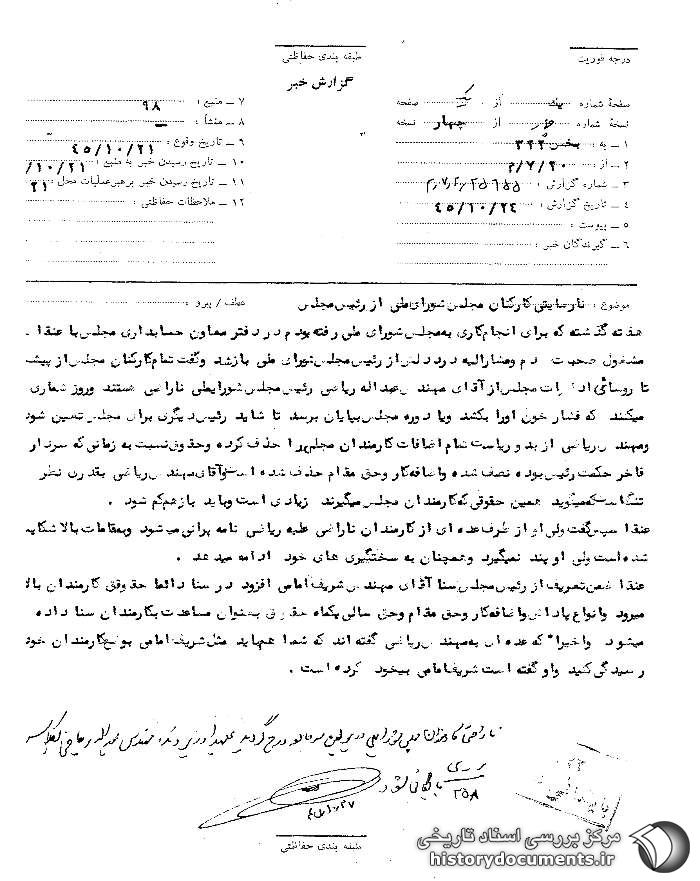 درجه فوریت
طبقه بندی حفاظتی
گزارش خبر
صفحهٔ شماره یک از یک صفحه
نسخهٔ شماره از چهار نسخه
۱ – به : بخش ۳۲۲
۲ – از : ۲۰/۷/م
۳ – شماره گزارش :
۴ – تاریخ گزارش : ۴۵/۱۰/۲۴
۵ – پیوست :
۶ – گیرندگان خبر :
۷ – منبع : ۹۸
۸ – منشأ : —
۹ – تاریخ وقوع : ۴۵/۱۰/۲۱
۱۰ – تاریخ رسیدن خبر به منبع : /۱۰/۲۱
۱۱ – تاریخ رسیدن خبر برهبرعملیات محل : ۲۱
۱۲ – ملاحظات حفاظتی :
موضوع : نارضایتی کارکنان مجلس شورای ملی از رئیس مجلس
عطف / پیرو :
هفته گذشته که برای انجام کاری به مجلس شورای ملی رفته بودم در دفتر معاون حسابداری مجلس با عنقا
مشغول صحبت دم ومشارالیه درددلش از رئیس مجلس شورای ملی بازشد وگفت تمام کارکنان مجلس از پیشخد
تا روسای ادارات مجلس از آقای مهندس عبداله ریاضی رئیس مجلس شورایملی ناراضی هستند وروز شماری
میکنند که فشار خون اورا بکشد ویا دوره مجلس بپایان برسد تا شاید رئیس دیگری برای مجلس تعیین شود
ومهندس ریاضی از بدو ریاست تمام اضافات کارمندان مجلس را حذف کرده وحقوق نسبت به زمانی که سردار
فاخر حکمت رئیس بوده نصف شده واضافه کار وحق مقام حذف شده است وآقای مهندس ریاضی بقدری نظر
تنگ است که میگوید همین حقوقی که کارمندان مجلس میگیرند زیادی است وباید بازهم کم شود .
عنقا سپس گفت ولی او از طرف عده ای از کارمندان ناراضی علیه ریاضی نامه پرانی میشود وبمقامات بالا شکایه
شده است ولی او پند نمیگیرد وهمچنان به سختگیری های خود ادامه میدهد .
عنقا ضمن تعریف از رئیس مجلس سنا آقای مهندس شریف امامی افزود در سنا دائما حقوق کارمندان بالا
میرود وانواع پاداش واضافه کار وحق مقام وحتی سالی یکماه حقوق بعنوان مساعدت بکارمندان سنا داده
میشود واخیرا" که عده ای به مهندس ریاضی گفته اند که شما هم باید مثل شریف امامی بوضع کارمندان خود
رسیدگی کنید واو گفته است شریف امامی بیخود کرده است .
بررسی
بایگانی شود
۲۵۸
طبقه بندی حفاظتی
مرکز بررسی اسناد تاریخی
historydocuments.ir